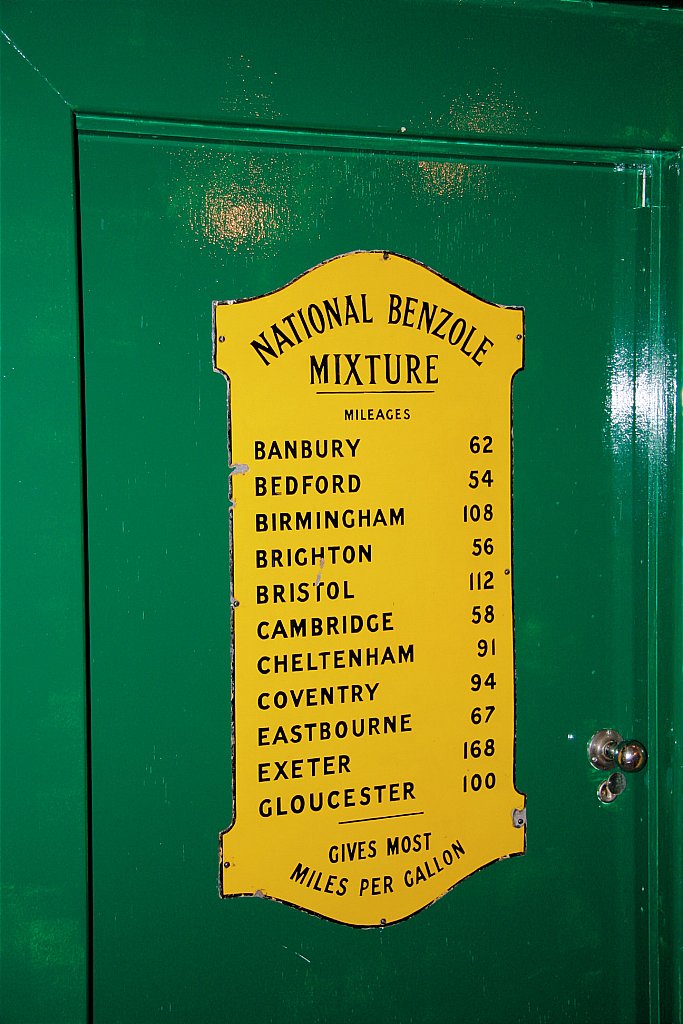 NATIONAL BENZOLE
MIXTURE
MILEAGES
BANBURY 62
BEDFORD 54
BIRMINGHAM 108
BRIGHTON 56
BRISTOL 112
CAMBRIDGE 58
CHELTENHAM 91
COVENTRY 94
EASTBOURNE 67
EXETER 168
GLOUCESTER 100
GIVES MOST
MILES PER GALLON